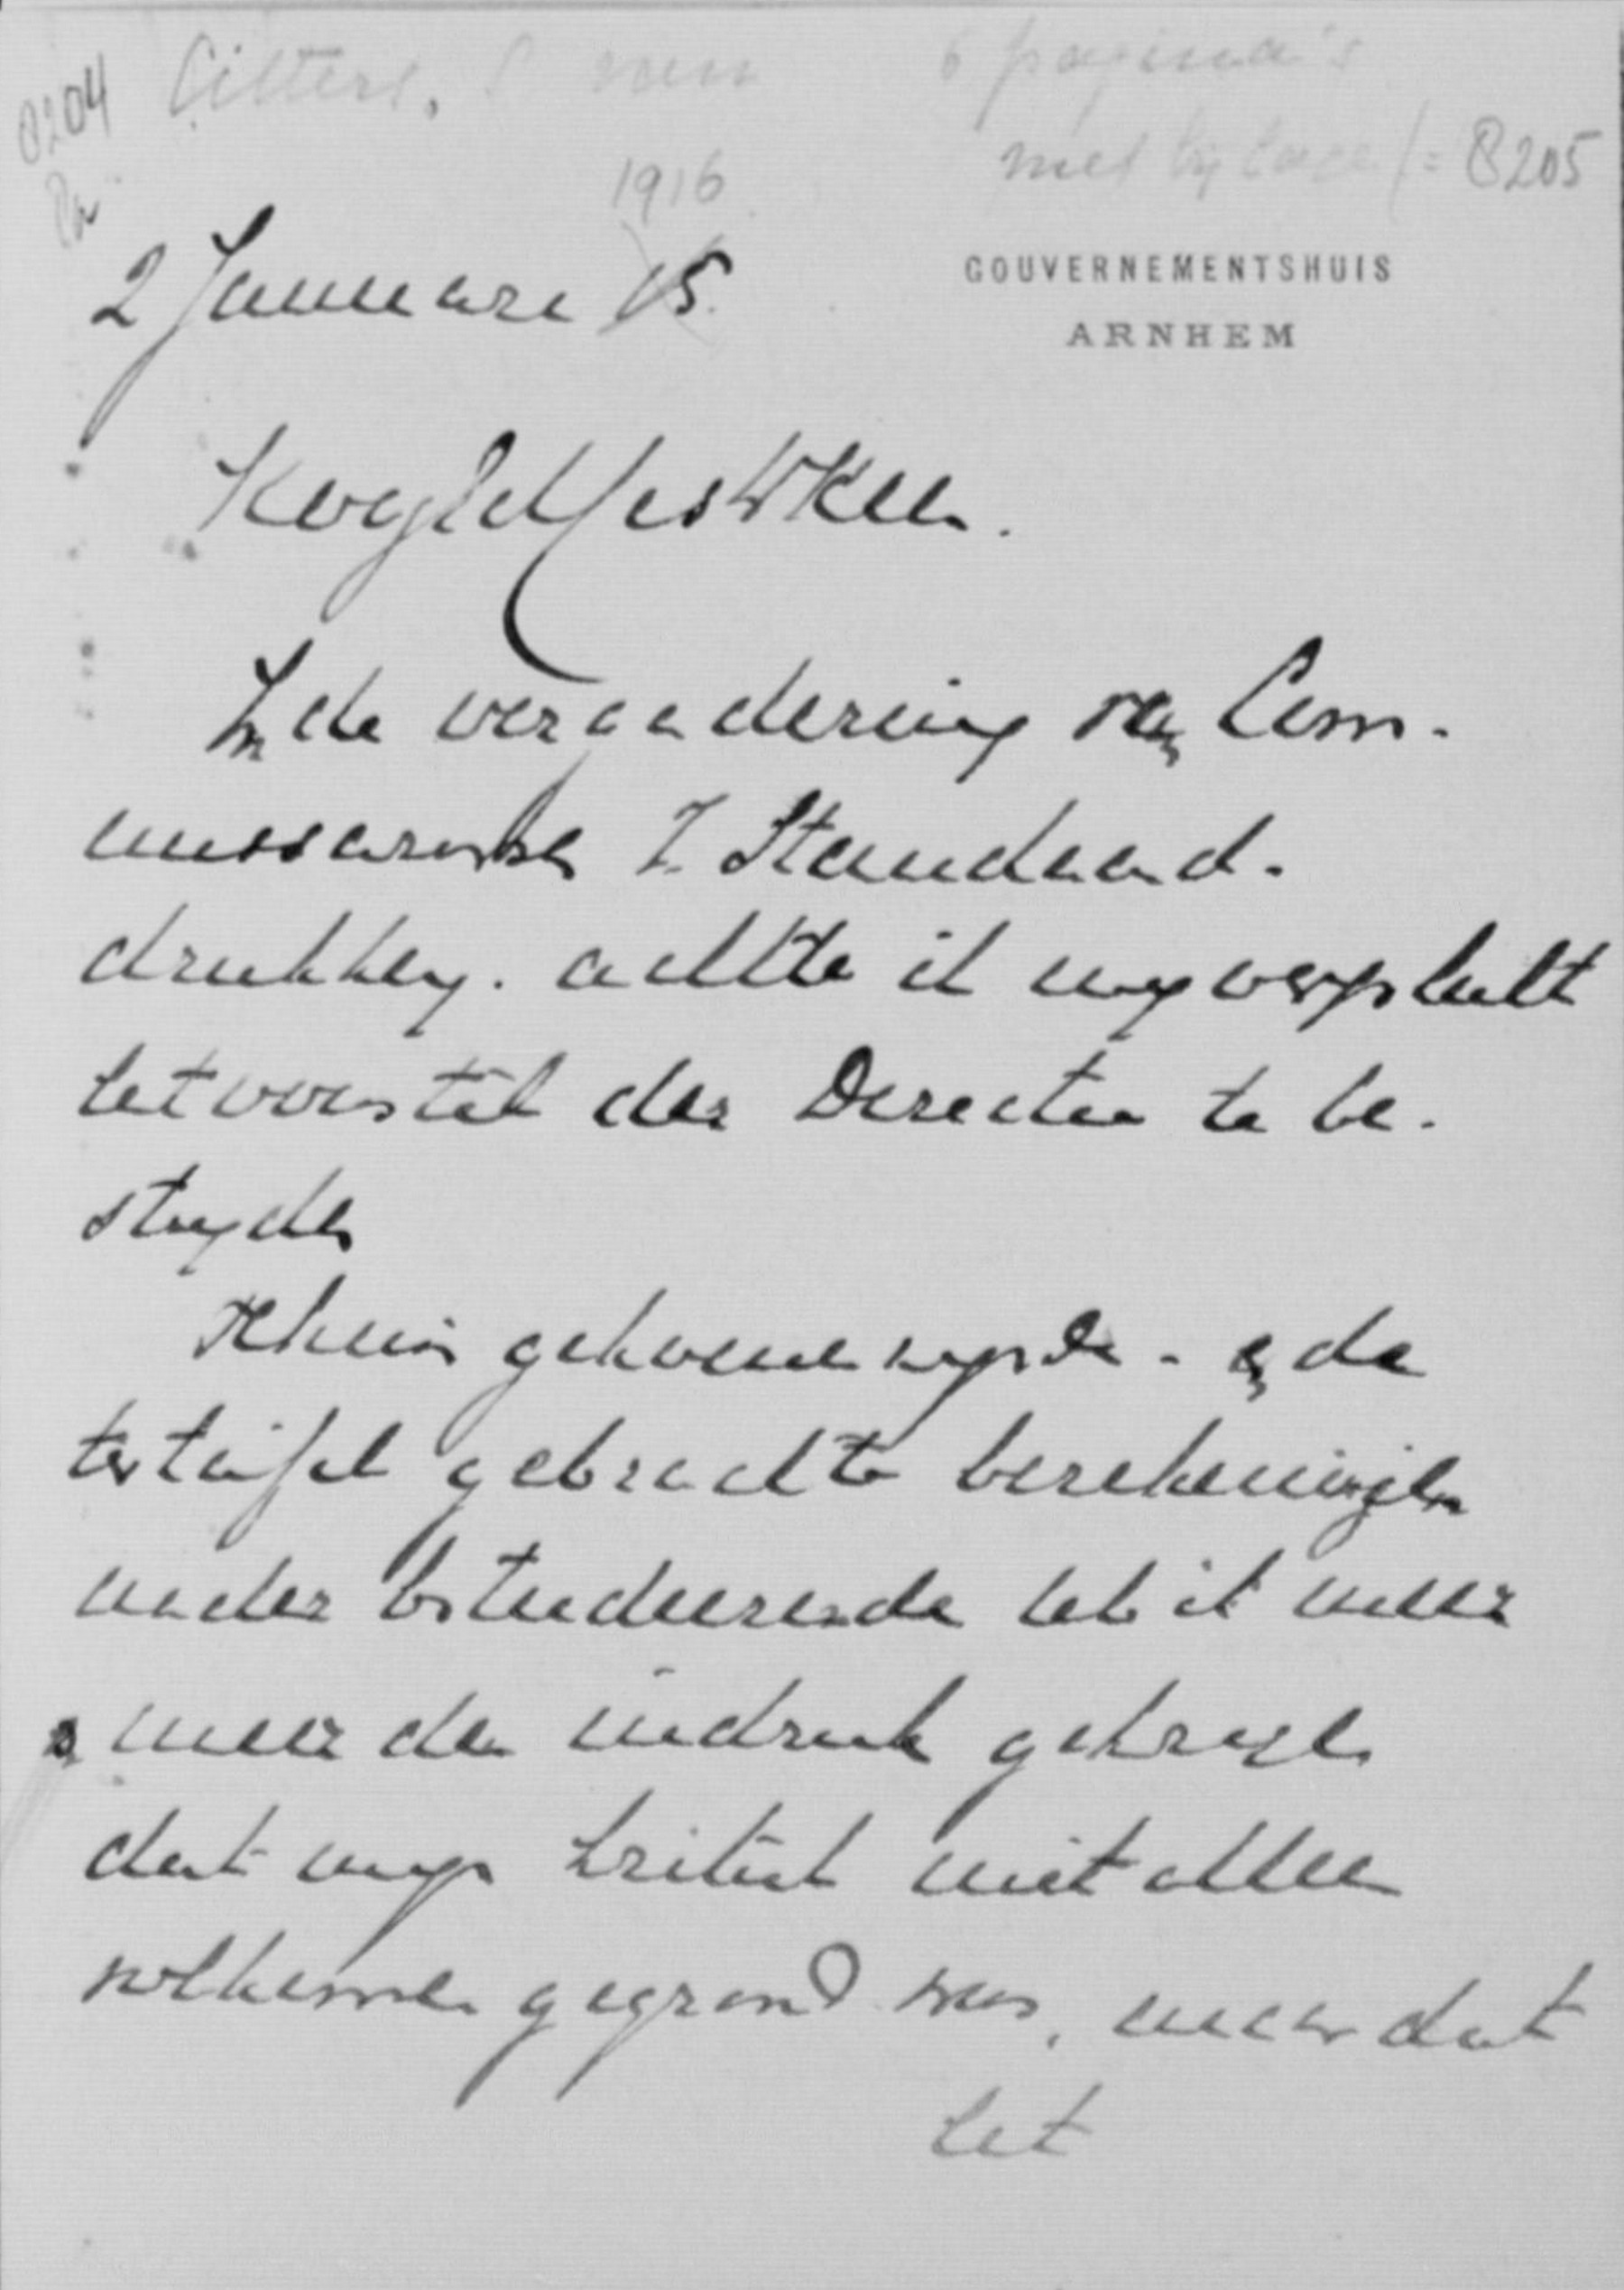 8204 Citters, S van 6 pagina's
met bijlage (= 8205
1916
2 Januari 15.
GOUVERNEMENTSHUIS
ARNHEM
In de vergadering van Com-
missarissen v. Standaard-
drukkerij. achtte ik mij verplicht
het voorstel der Directie te be-
strijden
Thuis gekomen zijnde - en de
ter tafel gebrachte berekeningen
nader bestudeerende heb ik meer
en meer den indruk gekregen
dat mijn kritiek niet alleen
volkomen gegrond was, maar dat
het